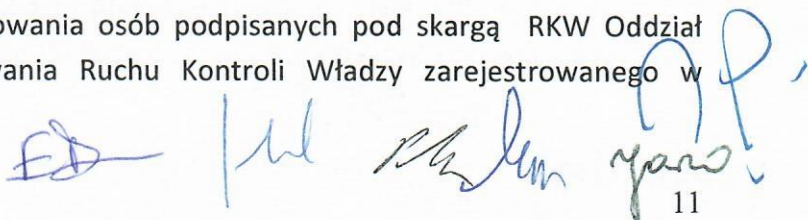 owania osób podpisanych pod skargą RKW Oddział
vania Ruchu Kontroli Władzy zarejestrowanego w
11